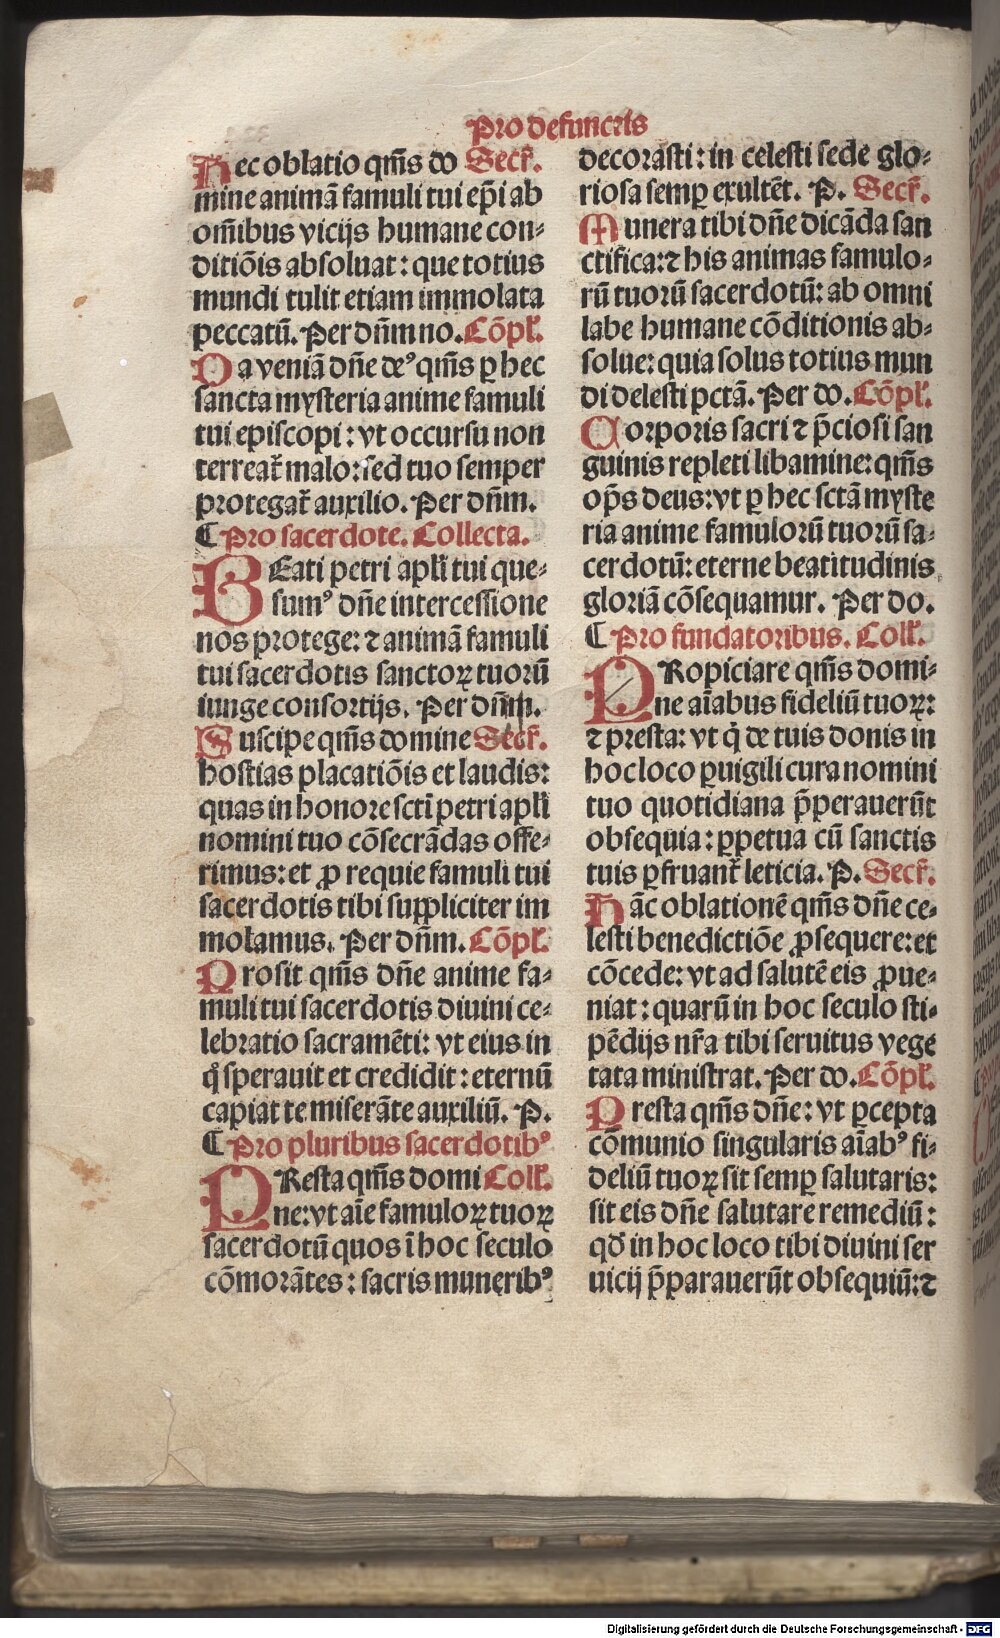 Pro defunctis
Hec oblatio qm̄s do Secr̄.
mine animā famuli tui ep̄i ab
om̄ibus vicijs humane con-
ditiōis absoluat: que totius
mundi tulit etiam immolata
peccatū. Per dn̄m no. Cōpl̄.
Da veniā dn̄e deꝰ qm̄s ꝑ hec
sancta mysteria anime famuli
tui episcopi: vt occursu non
terreat᷑ malo: sed tuo semper
protegat᷑ auxilio. Per dn̄m.
¶ Pro sacerdote. Collecta.
BEati petri apl̄i tui que-
sumꝰ dn̄e intercessione
nos protege: ⁊ animā famuli
tui sacerdotis sanctoꝝ tuorū
iunge consortijs. Per dn̄m.
Suscipe qm̄s domine Secr̄.
hostias placatiōis et laudis:
quas in honore scti petri apl̄i
nomini tuo cōsecrādas offe-
rimus: et ꝓ requie famuli tui
sacerdotis tibi suppliciter im
molamus. Per dn̄m. Cōpl̄.
Prosit qm̄s dn̄e anime fa-
muli tui sacerdotis diuini ce-
lebratio sacramēti: vt eius in
q̄ sperauit et credidit: eternū
capiat te miserāte auxiliū. P.
¶ Pro pluribus sacerdotibꝰ
PResta qm̄s domi Coll̄.
ne: vt aīe famuloꝝ tuoꝝ
sacerdotū quos ī hoc seculo
cōmorātes: sacris muneribꝰ
decorasti: in celesti sede glo-
riosa semꝑ exultēt. P. Secr̄.
Munera tibi dn̄e dicāda san
ctifica: ⁊ his animas famulo-
rū tuorū sacerdotū: ab omni
labe humane cōditionis ab-
solue: quia solus totius mun
di delesti pctā. Per do. Cōpl̄.
Corporis sacri ⁊ p̄ciosi san
guinis repleti libamine: qm̄s
op̄s deus: vt ꝑ hec sctā myste
ria anime famulorū tuorū sa-
cerdotū: eterne beatitudinis
gloriā cōsequamur. Per do.
¶ Pro fundatoribus. Coll̄.
PRopiciare qm̄s domi-
ne aīabus fideliū tuoꝝ:
⁊ presta: vt q̇ de tuis donis in
hoc loco ꝑuigili cura nomini
tuo quotidiana p̄perauerūt
obsequia: ꝑpetua cū sanctis
tuis ꝑfruant᷑ leticia. P. Secr̄.
Hāc oblationē qm̄s dn̄e ce-
lesti benedictiōe ꝓsequere: et
cōcede: vt ad salutē eis ꝓue-
niat: quarū in hoc seculo sti-
pēdijs nr̄a tibi seruitus vege
tata ministrat. Per do. Cōpl̄.
Presta qm̄s dn̄e: vt ꝑcepta
cōmunio singularis aīabꝰ fi-
deliū tuoꝝ sit semꝑ salutaris:
sit eis dn̄e salutare remediū:
qď in hoc loco tibi diuini ser
uicij p̄parauerūt obsequiū: ⁊
Digitalisierung gefördert durch die Deutsche Forschungsgemeinschaft - DFG